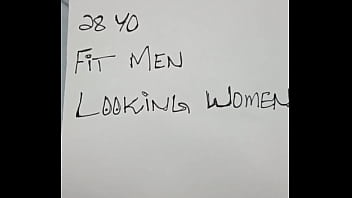 28 YO
FIT MEN
LOOKING WOMEN